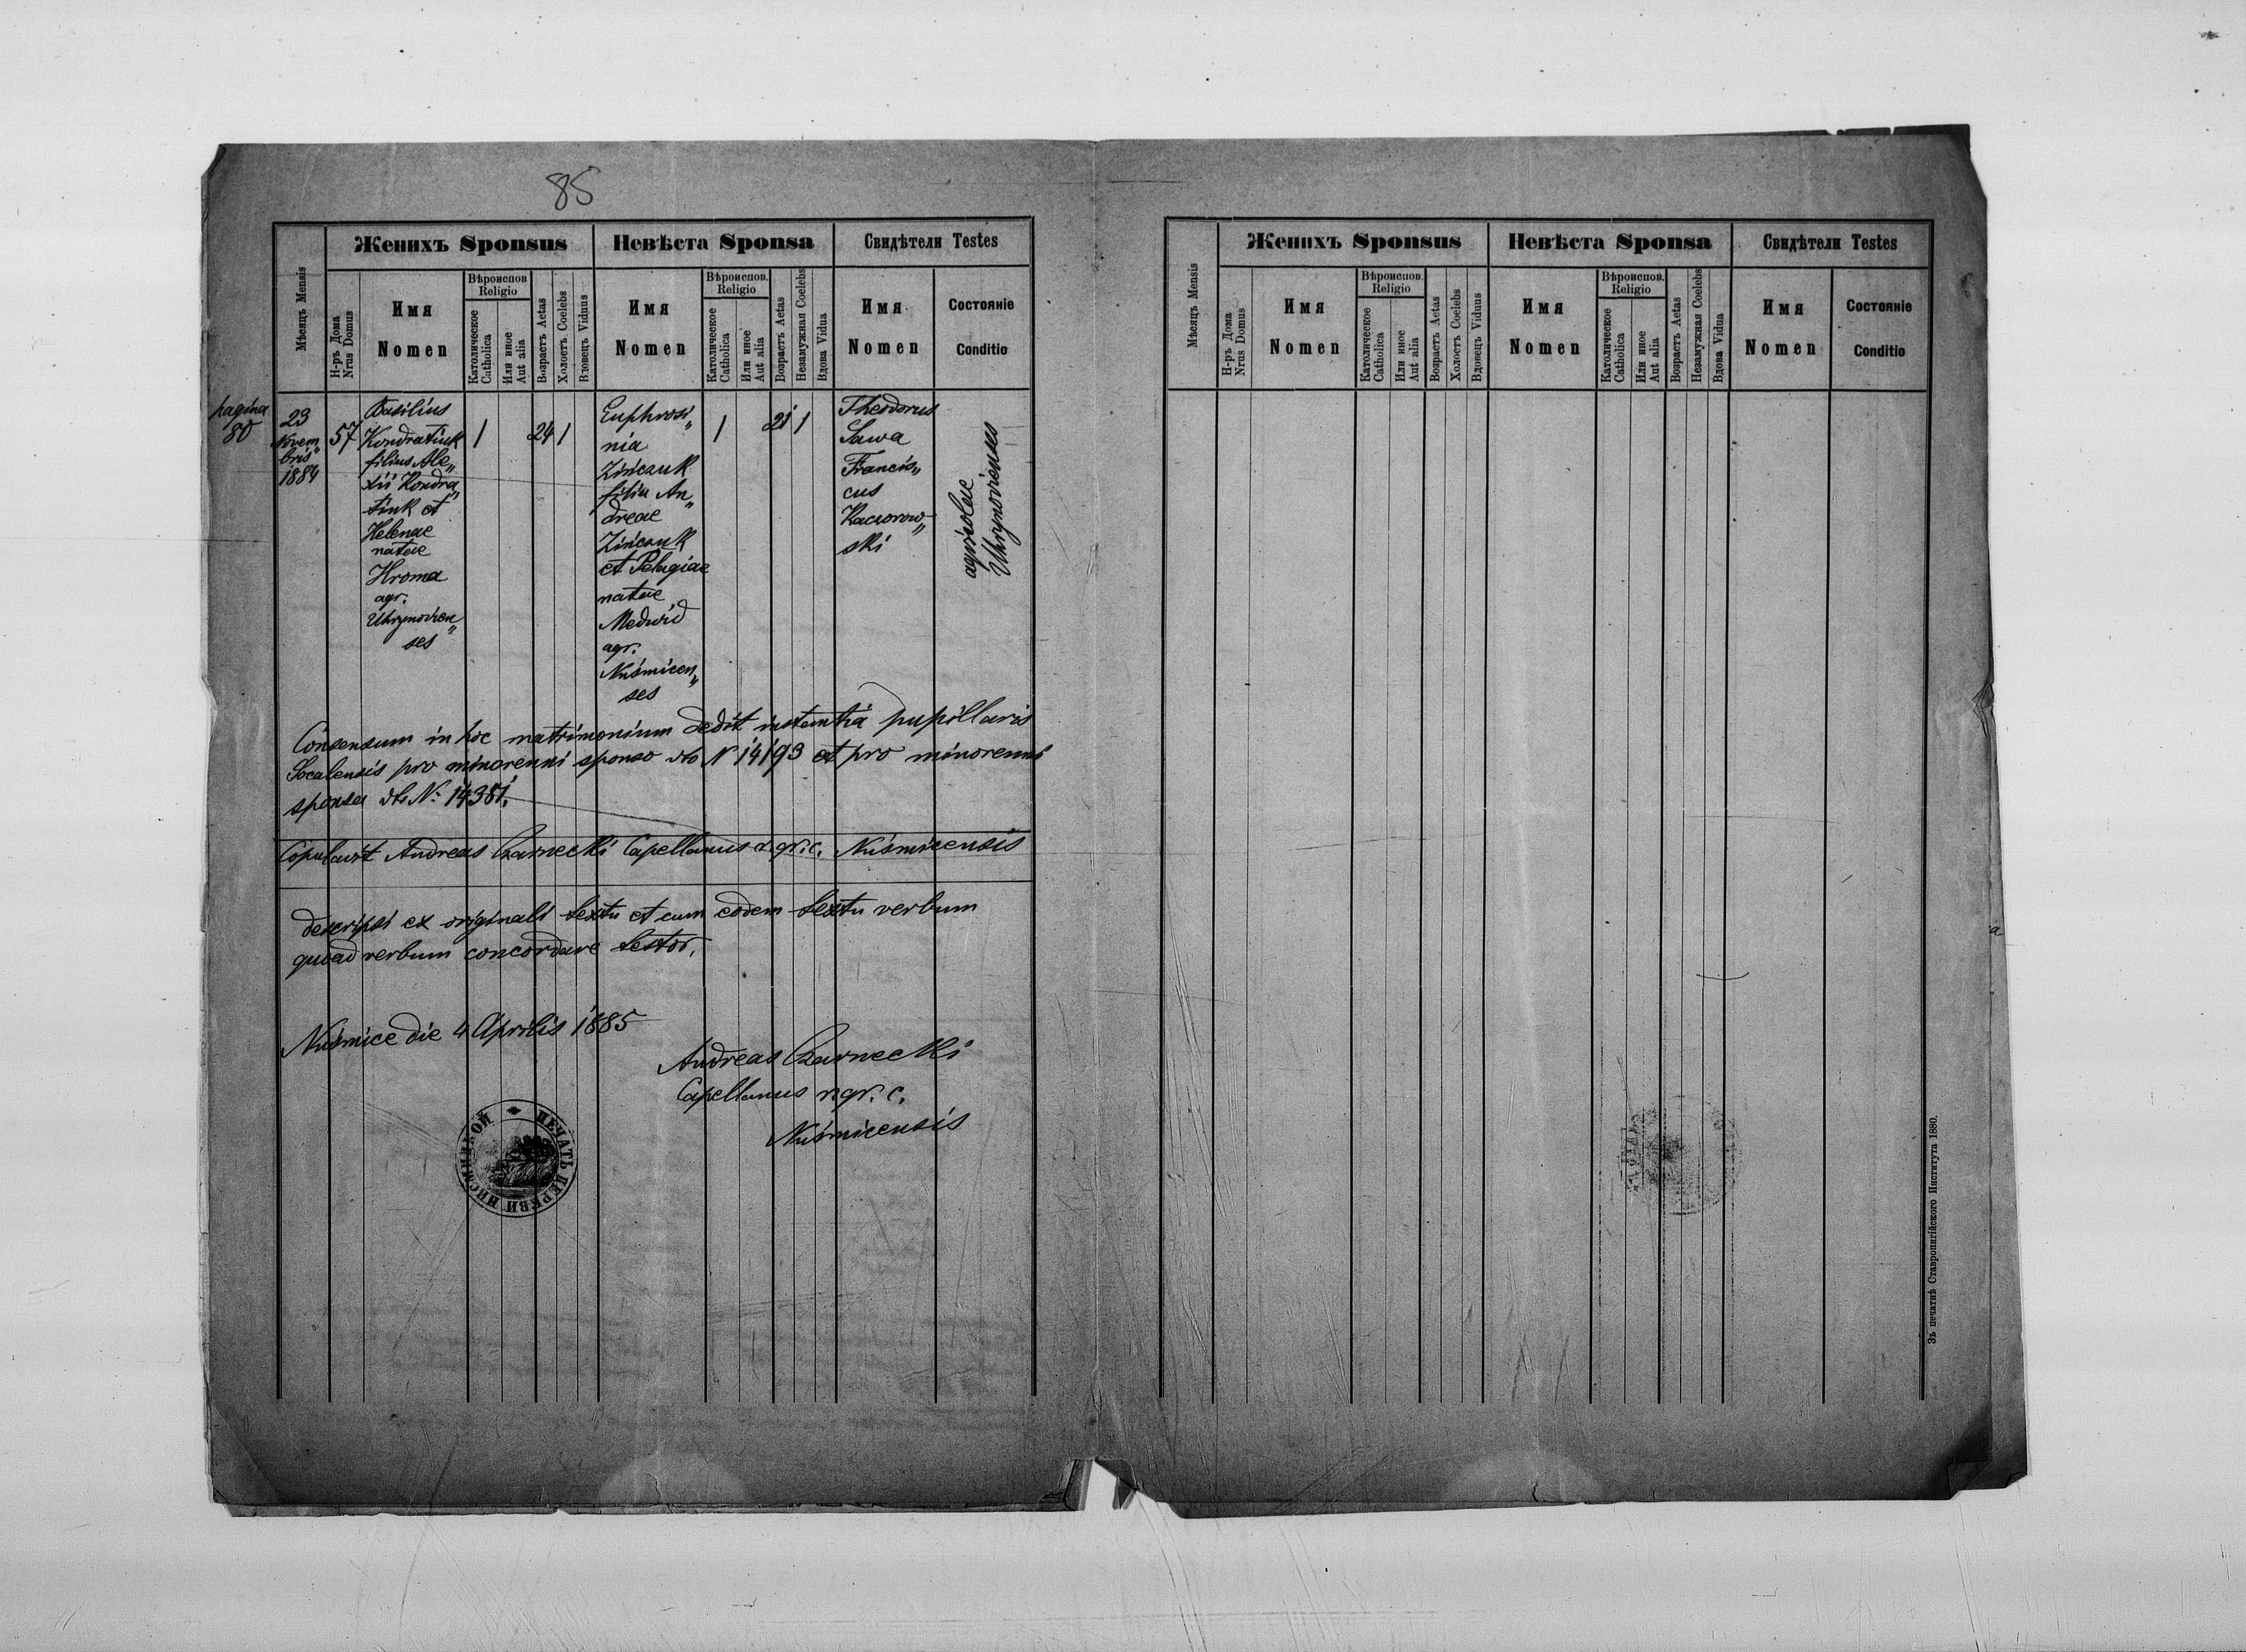 85
Женихъ Sponsus
Невѣста Sponsa
Свидѣтели Testes
Мѣсяцъ Mensis
Н-ръ Дома
Nrus Domus
Имя
Nomen
Вѣроиспов.
Religio
Католическое
Catholica
Или иное
Aut alia
Возрастъ Aetas
Холостъ Coelebs
Вдовецъ Viduus
Имя
Nomen
Вѣроиспов.
Religio
Католическое
Catholica
Или иное
Aut alia
Возрастъ Aetas
Незамужная Coelebs
Вдова Vidua
Имя
Nomen
Состояніе
Conditio
pagina
80
23
Novem„
bris
1884
57
Basilius
Kondratiuk
filius Ale„
xii Kondra„
tiuk et
Helenae
natae
Hroma
agr.
Uhrynovien„
ses
1
24
1
Euphrosi„
nia
Zińczuk
filia An„
dreae
Zińczuk
et Pelagiae
natae
Medwid
agr.
Nuśmicen„
ses
1
21
1
Theodorus
Sawa
Francis„
cus
Kaczorow„
ski
agricolae
Uhrynovienses
Consensum in hoc matrimonium dedit instantia pupillaris
Socalensis pro minorenni sponso dto N 14193 et pro minorenni
sponsa dto N: 14381.
Copulavit Andreas Czarnecki Capellanus r. gr. c. Nuśmicensis
Descripsi ex originali textu et cum eodem textu verbum
quoad verbum concordare testor.
Nuśmice die 4 Aprilis 1885
Andreas Czarnecki
Capellanus r. gr. c.
Nuśmicensis
ПЕЧАТЬ ЦЕРКВИ
Женихъ Sponsus
Невѣста Sponsa
Свидѣтели Testes
Мѣсяцъ Mensis
Н-ръ Дома
Nrus Domus
Имя
Nomen
Вѣроиспов.
Religio
Католическое
Catholica
Или иное
Aut alia
Возрастъ Aetas
Холостъ Coelebs
Вдовецъ Viduus
Имя
Nomen
Вѣроиспов.
Religio
Католическое
Catholica
Или иное
Aut alia
Возрастъ Aetas
Незамужная Coelebs
Вдова Vidua
Имя
Nomen
Состояніе
Conditio
Зъ печатнѣ Ставропигійского Института 1880.